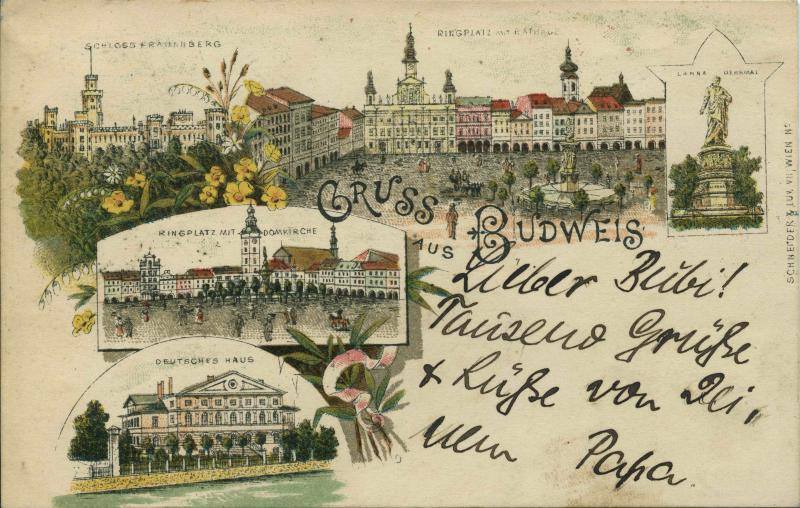 SCHLOSS FRAUENBERG
RINGPLATZ MIT RATHAUS
LANNA DENKMAL
GRUSS
AUS
BUDWEIS
RINGPLATZ MIT DOMKIRCHE
DEUTSCHES HAUS
Lieber Bubi!
Tausend Grüße
& Küße von Dei,
nem Papa.
SCHNEIDER & LUX, VIII, WIEN No